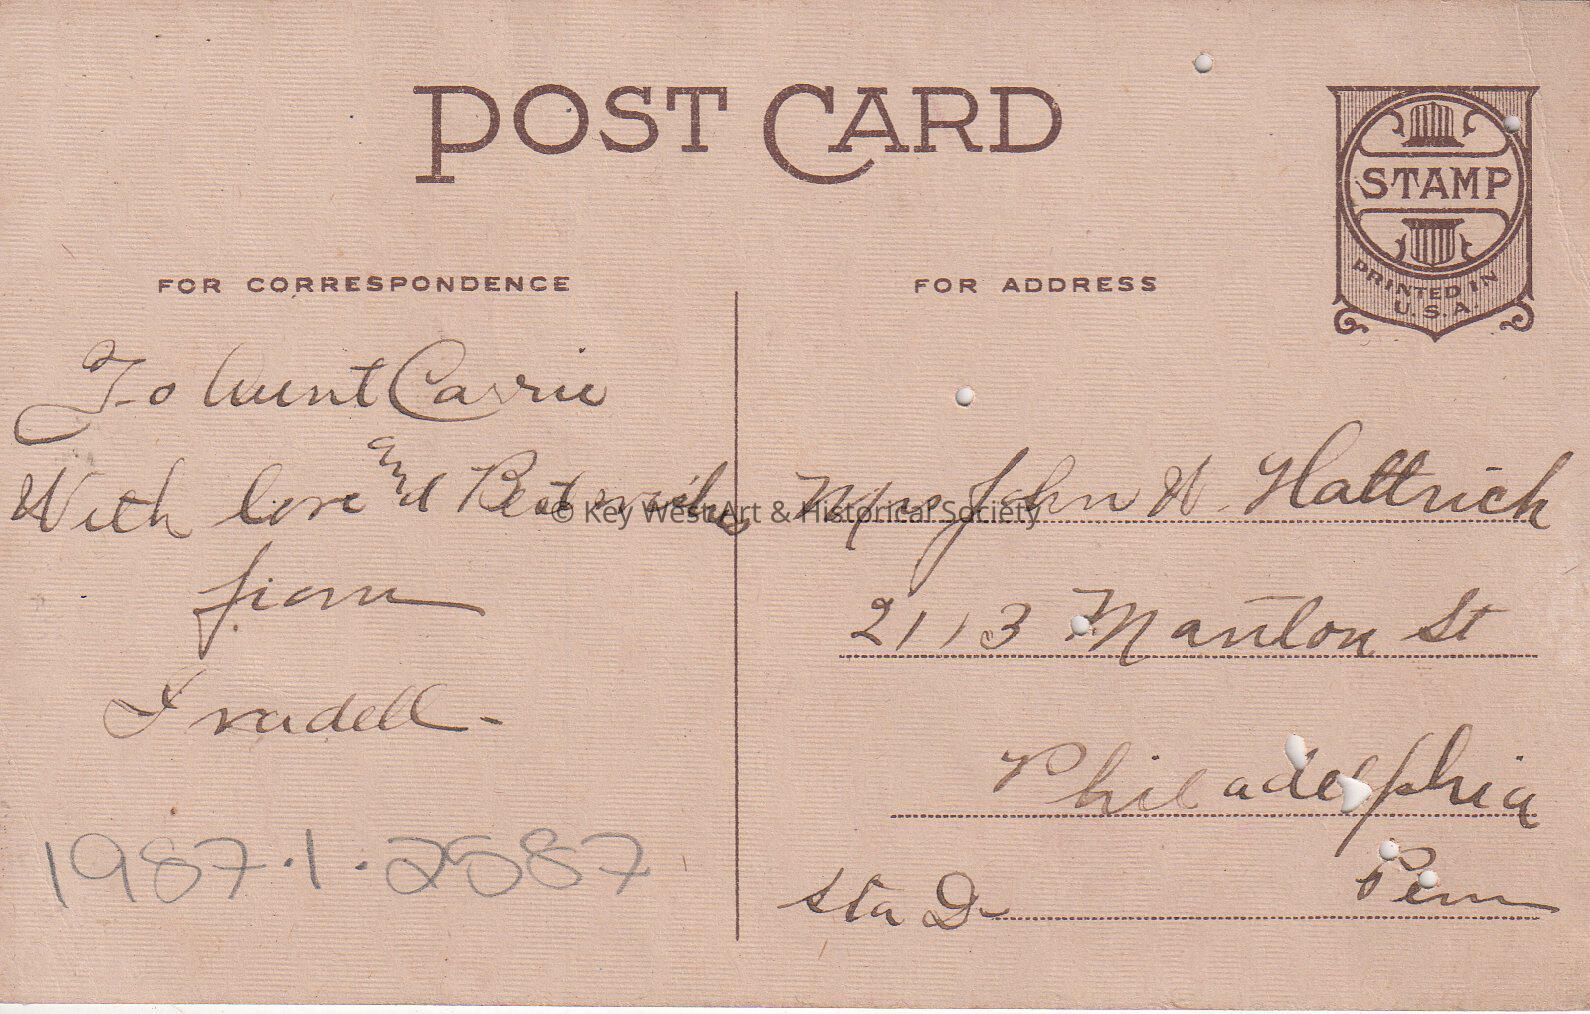 POST CARD
STAMP
PRINTED IN
U.S.A.
FOR CORRESPONDENCE
FOR ADDRESS
To Aunt Carrie
With love and Best wishes
from
Iradell -
© Key West Art & Historical Society
Mrs John W. Hattrich
2113 Manton St
Philadelphia
Penn
Sta D
1987.1.2587